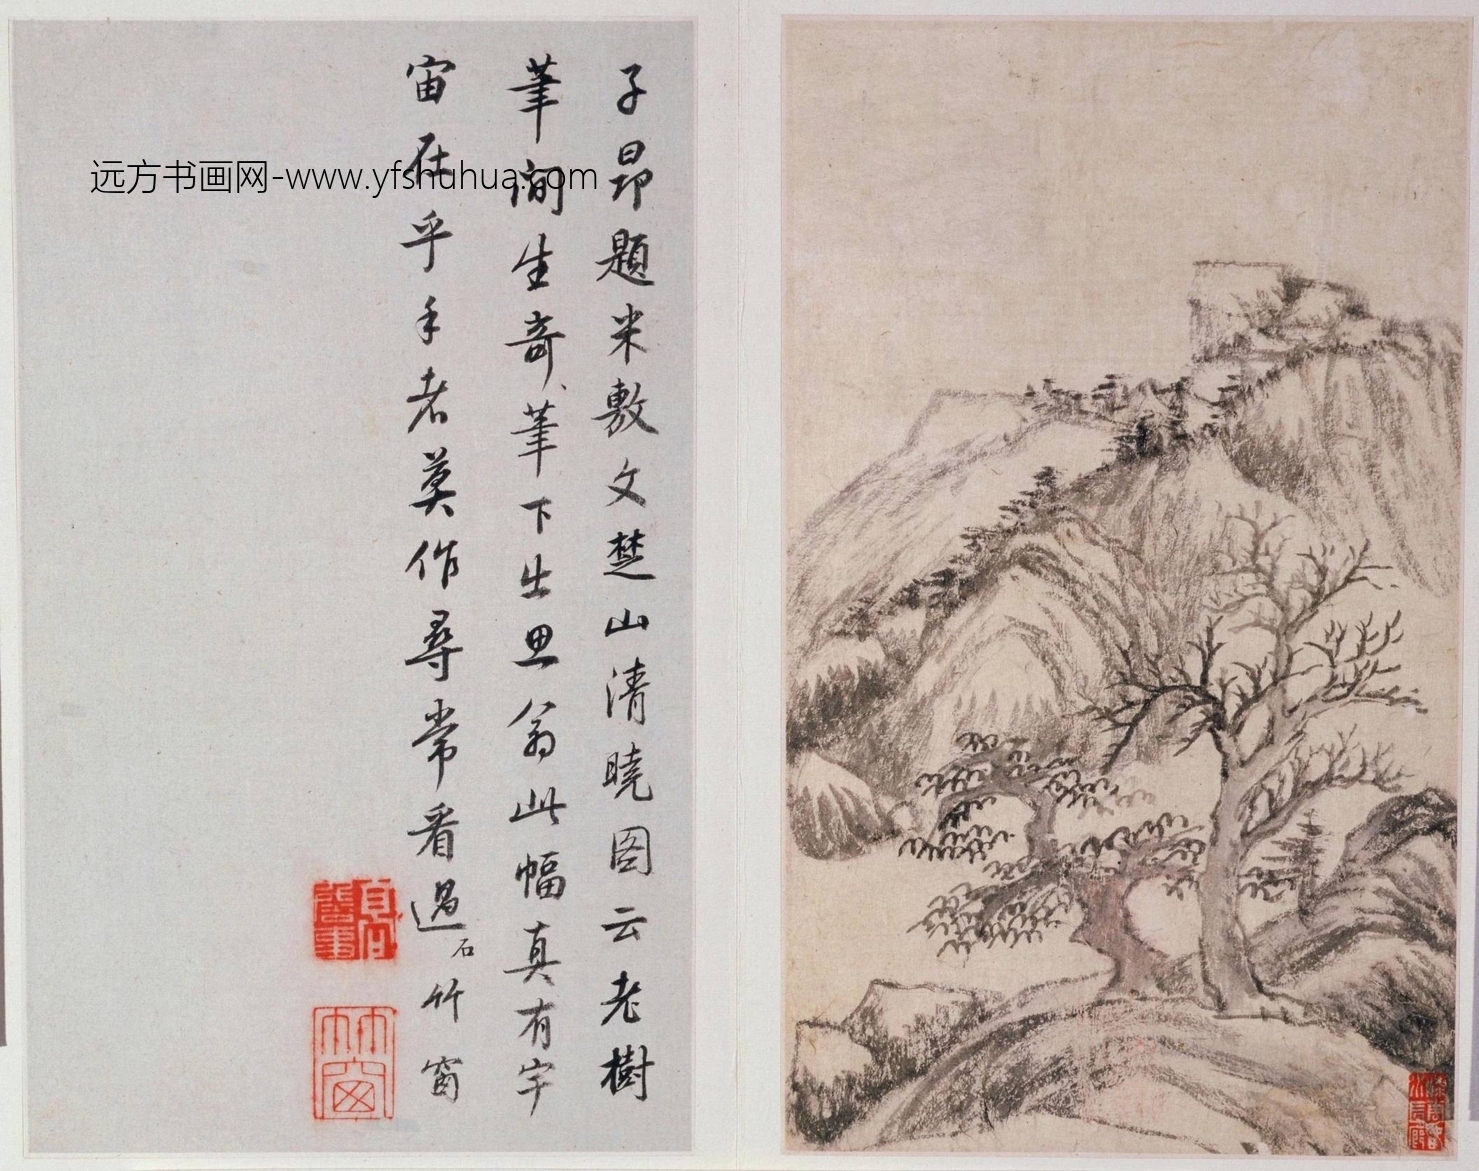 子昂题米敷文楚山清晓图云老樹
筆间生奇筆下出思翁此幅真有宇
宙在乎手者莫作尋常看過
石竹窗
远方书画网-www.yfshuhua.com
竹窗